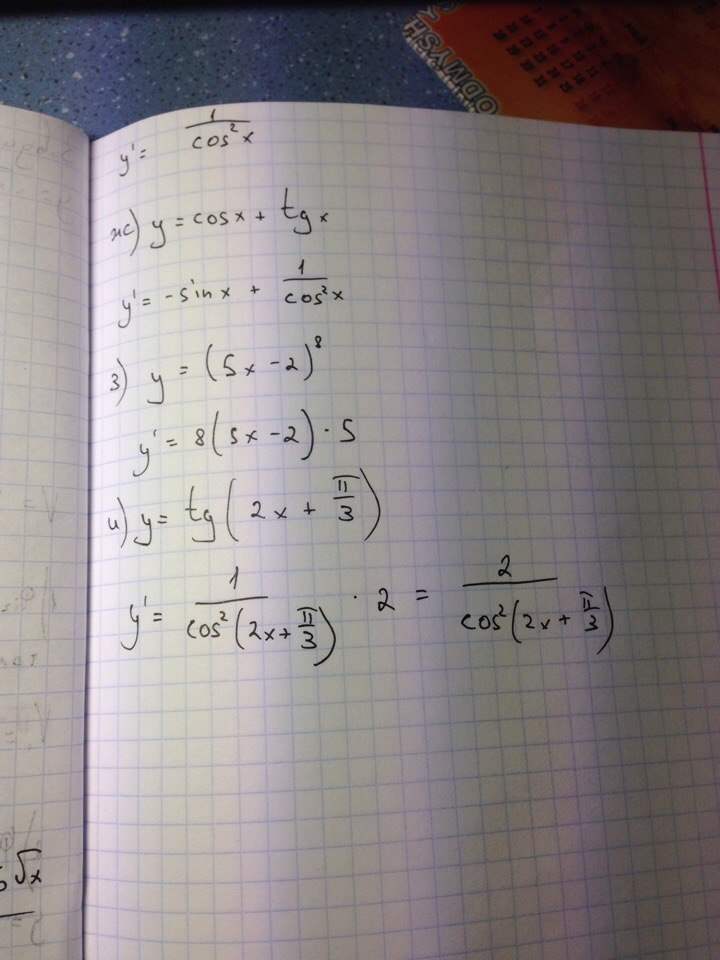 y' = 1/cos²x
ж) y = cosx + tgx
y' = -sinx + 1/cos²x
з) y = (5x - 2)⁸
y' = 8(5x - 2) · 5
и) y = tg(2x + π/3)
y' = 1/cos²(2x + π/3) · 2 = 2/cos²(2x + π/3)
√x